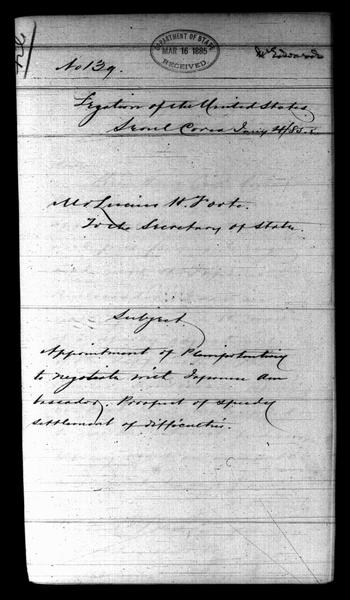 DEPARTMENT OF STATE
MAR 16 1885
RECEIVED
Mr Edwards
No 139.
Legation of the United States
Seoul Corea Jan'y 4/85.
Mr Lucius H. Foote.
To the Secretary of State.
Subject
Appointment of Plenipotentiary
to negotiate with Japanese Am
bassador. Prospect of speedy
settlement of difficulties.